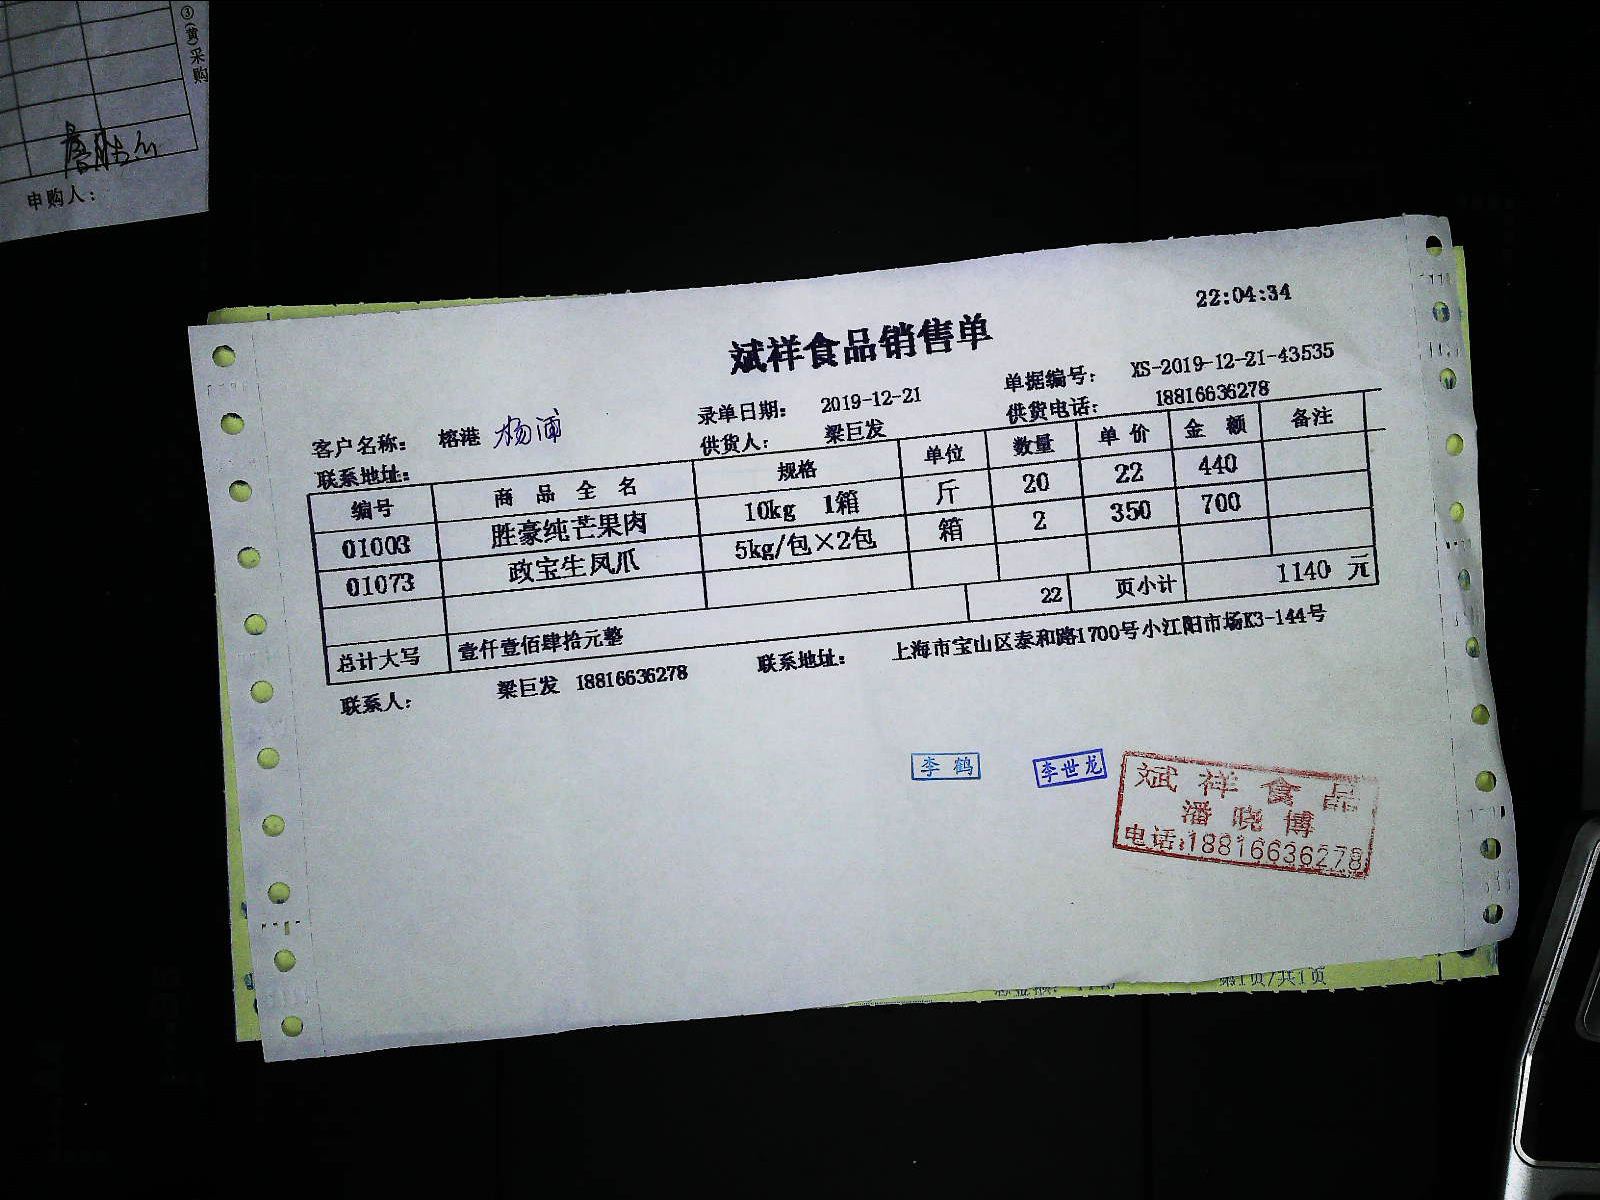 ③(黄)采购
申购人：
22:04:34
斌祥食品销售单
录单日期： 2019-12-21 单据编号： XS-2019-12-21-43535
客户名称： 榕港 杨浦 供货人： 梁巨发 供货电话： 18816636278
联系地址：
编号 商 品 全 名 规格 单位 数量 单 价 金 额 备注
01003 胜豪纯芒果肉 10kg 1箱 斤 20 22 440
01073 政宝生凤爪 5kg/包×2包 箱 2 350 700
22 页小计 1140 元
总计大写 壹仟壹佰肆拾元整
联系人： 梁巨发 18816636278 联系地址： 上海市宝山区泰和路1700号小江阳市场K3-144号
李鹤 李世龙
斌祥食品
潘晓博
电话:18816636278
第1页/共1页